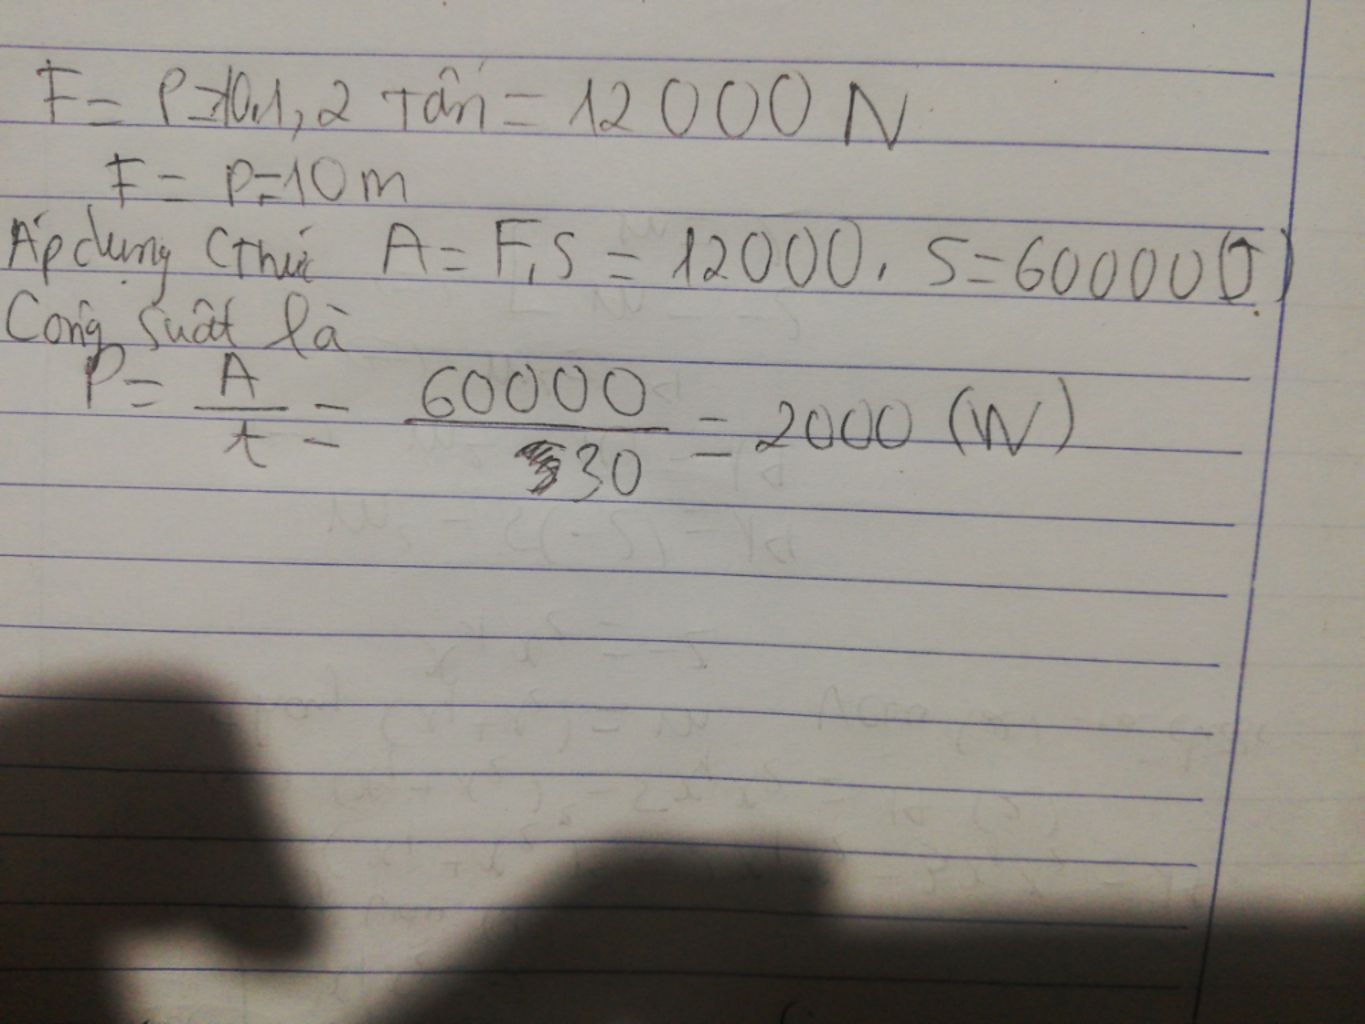 F = P = 10.1,2 tấn = 12000 N
F = P = 10m
Áp dụng Cthức A = F.S = 12000. 5 = 60000(J)
Công suất là
P = A/t = 60000/30 = 2000 (W)